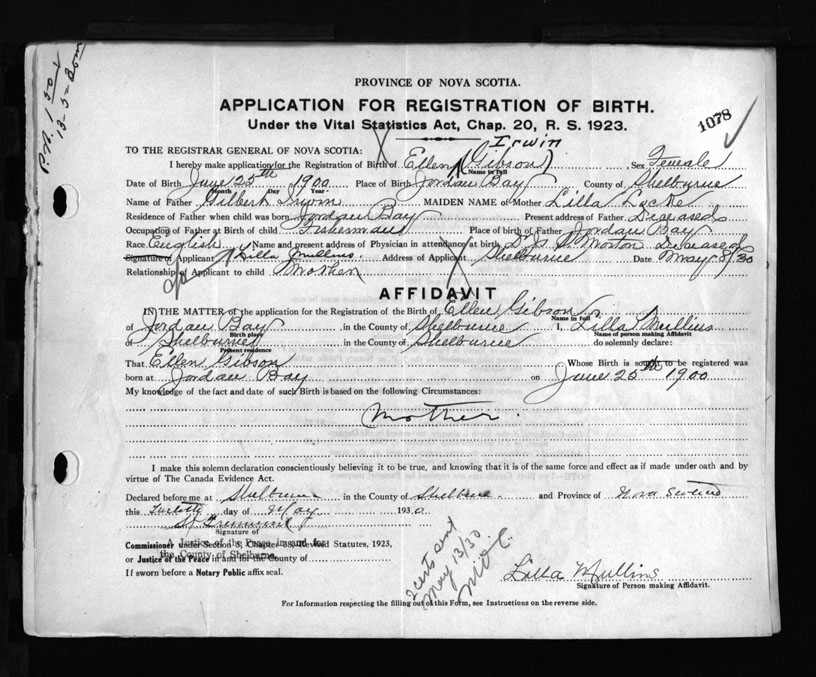 P.A. 1
13-5-30
PROVINCE OF NOVA SCOTIA.
APPLICATION FOR REGISTRATION OF BIRTH.
1078
Under the Vital Statistics Act, Chap. 20, R. S. 1923.
Irwin
TO THE REGISTRAR GENERAL OF NOVA SCOTIA:
I hereby make application for the Registration of Birth of Ellen (Gibson) Sex Female
Name in full
Date of Birth June 25th 1900 Place of Birth Jordan Bay County of Shelburne
Month Day Year
Name of Father Gilbert MAIDEN NAME of Mother Lilla Locke
Residence of Father when child was born Jordan Bay Present address of Father Diseased
Occupation of Father at Birth of child Fisherman Place of birth of Father Jordan Bay
Race English Name and present address of Physician in attendance at birth Dr Morton Deceased
Signature of Applicant Lilla Mullins. Address of Applicant Shelburne Date May 8/30
Relationship of Applicant to child Mother
AFFIDAVIT
IN THE MATTER of the application for the Registration of Birth of Ellen Gibson
Name in full
of Jordan Bay in the County of Shelburne I, Lilla Mullins
Birth place Name of person making Affidavit
of Shelburne in the County of Shelburne do solemnly declare:
Present residence
That Ellen Gibson Whose Birth is sought to be registered was
born at Jordan Bay on June 25th 1900
My knowledge of the fact and date of such Birth is based on the following Circumstances:
Mother.
I make this solemn declaration conscientiously believing it to be true, and knowing that it is of the same force and effect as if made under oath and by
virtue of The Canada Evidence Act.
Declared before me at Shelburne in the County of Shelburne and Province of Nova Scotia
this Twelfth day of May 1930
Signature of
Commissioner under Section 8, Chapter 38, Revised Statutes, 1923,
A Justice of the Peace in and for
or Justice of the Peace in and for the County of
the County of Shelburne.
If sworn before a Notary Public affix seal.
2 certs sent
May 13/30
Lilla Mullins
Signature of Person making Affidavit.
For Information respecting the filling out of this Form, see Instructions on the reverse side.